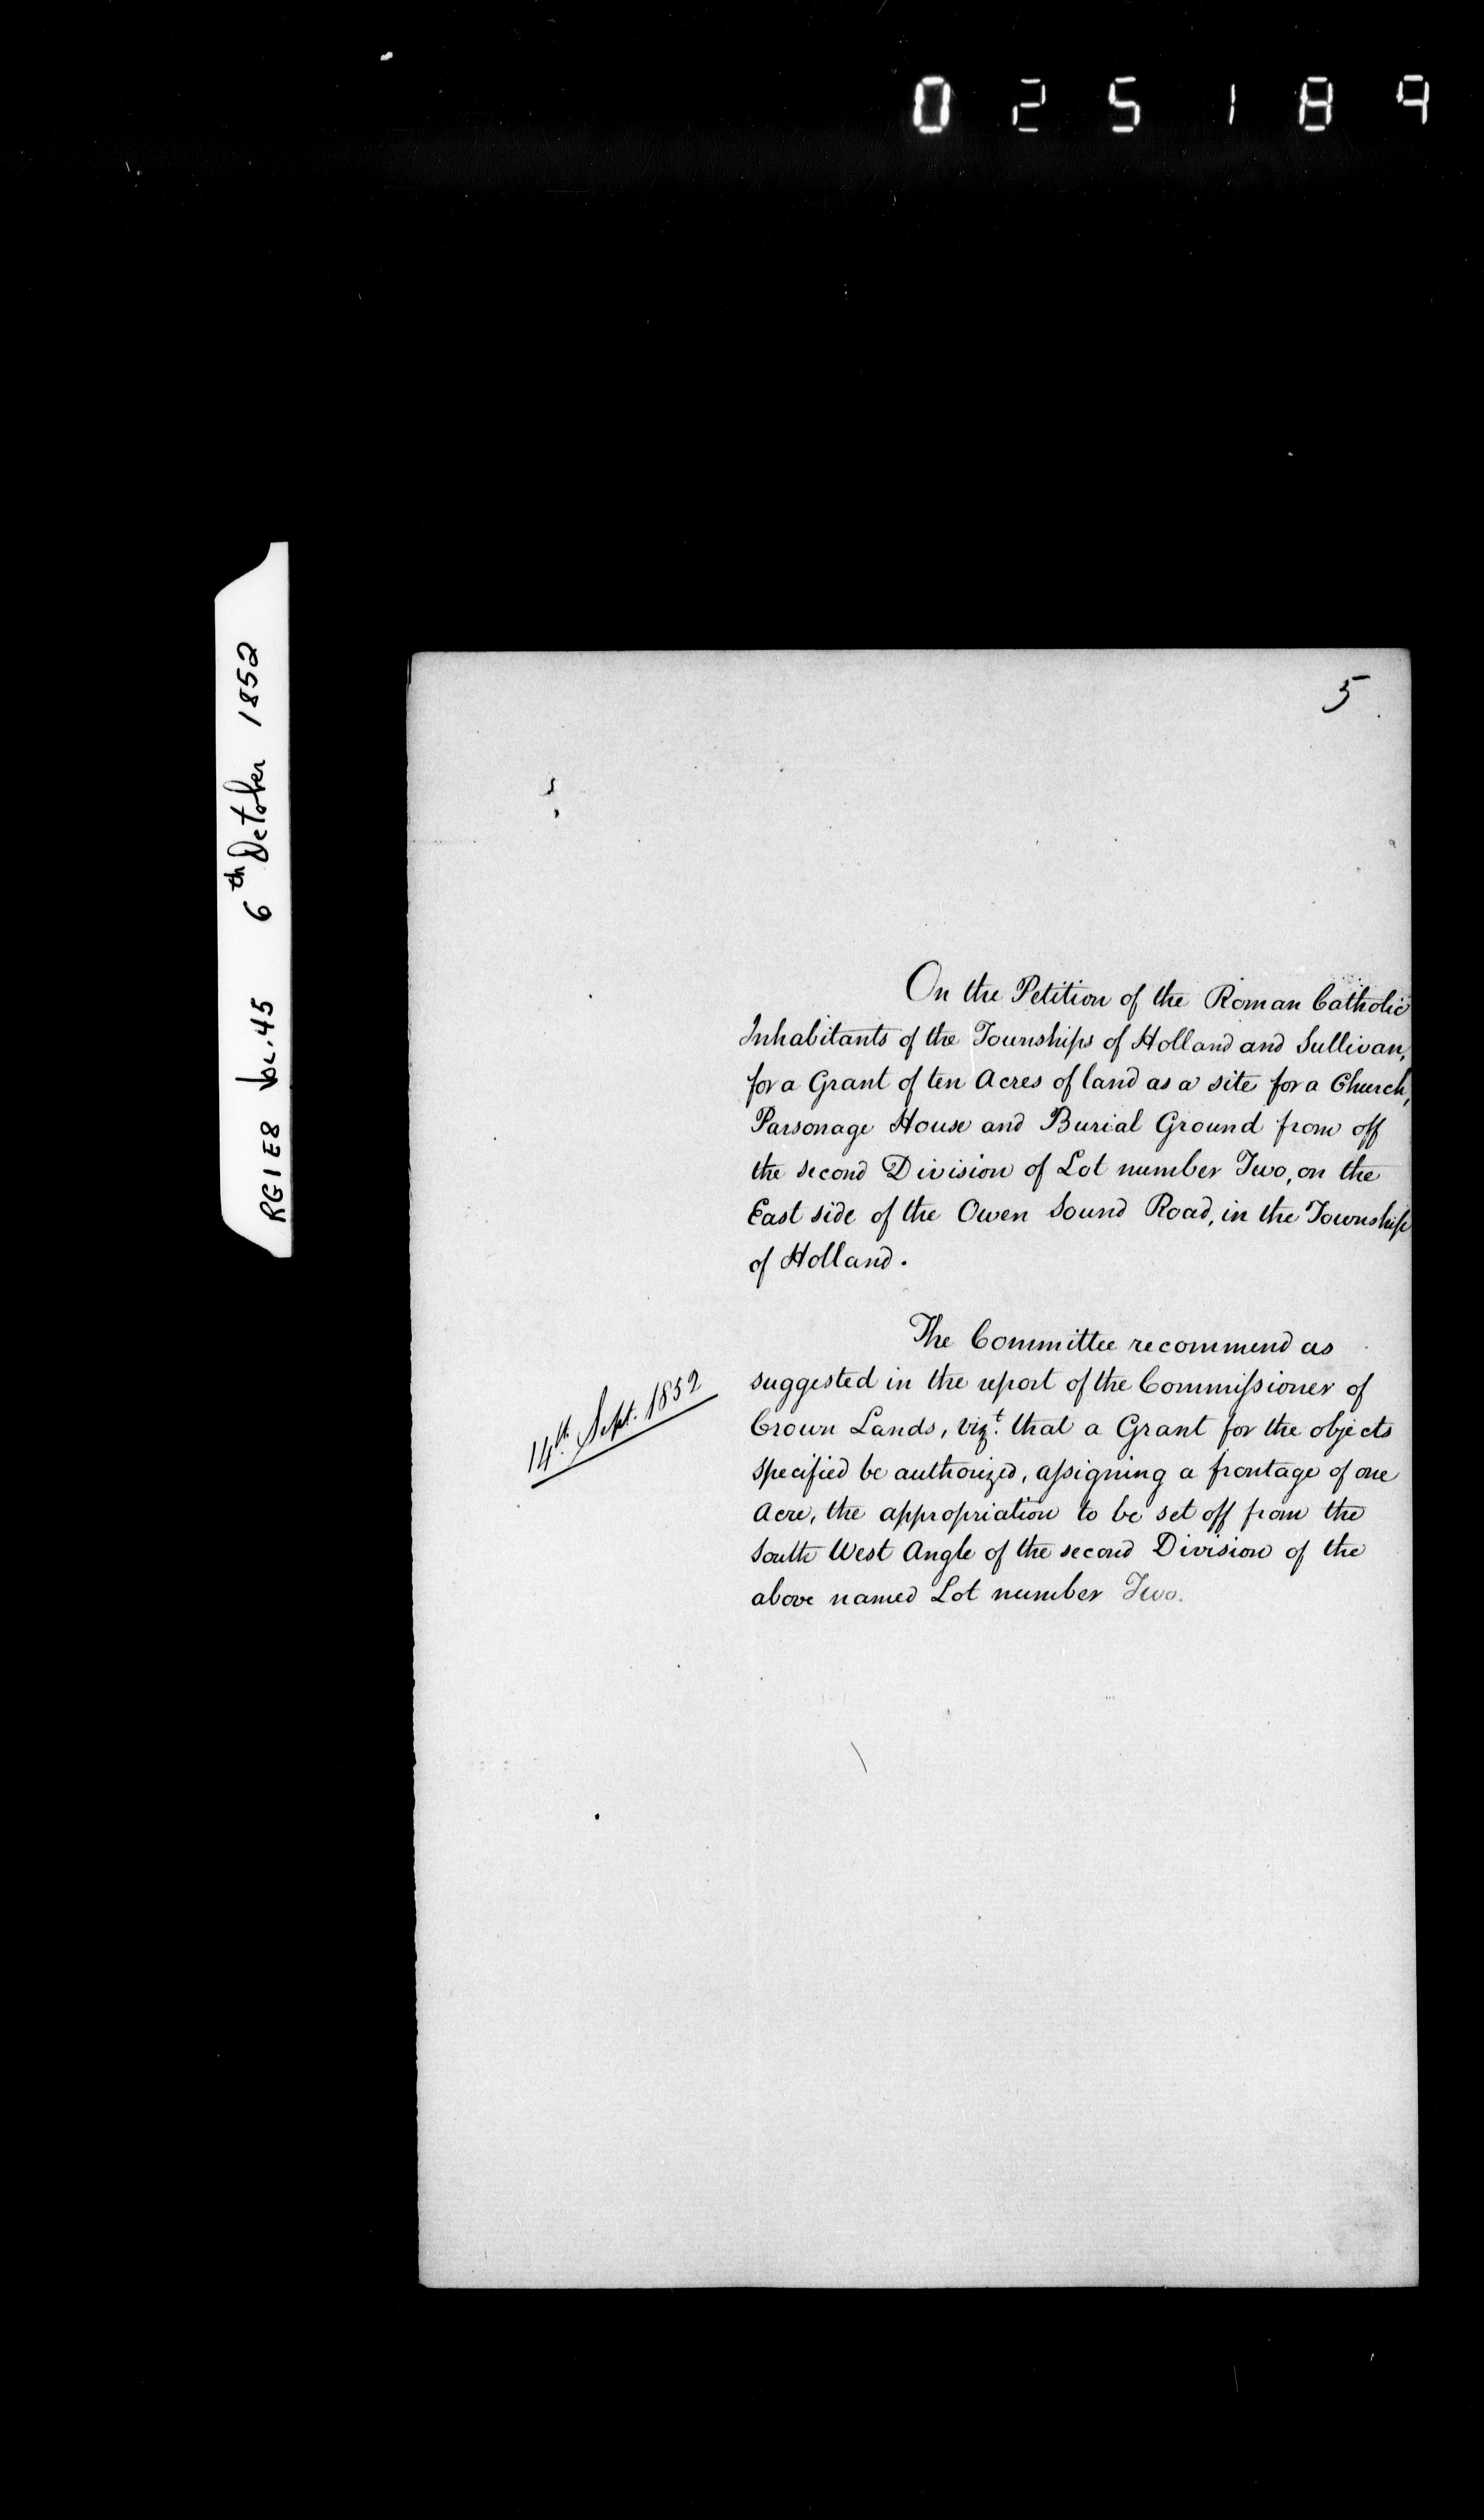 025189
RG 1 E8 Vol. 45 6th October 1852
5
On the Petition of the Roman Catholic
Inhabitants of the Townships of Holland and Sullivan,
for a Grant of ten Acres of land as a site for a Church,
Parsonage House and Burial Ground from off
the second Division of Lot number Two, on the
East side of the Owen Sound Road, in the Township
of Holland.
The Committee recommend as
suggested in the report of the Commissioner of
Crown Lands, vizt. that a Grant for the objects
specified be authorized, assigning a frontage of one
Acre, the appropriation to be set off from the
South West Angle of the second Division of the
above named Lot number Two.
14th. Sept. 1852